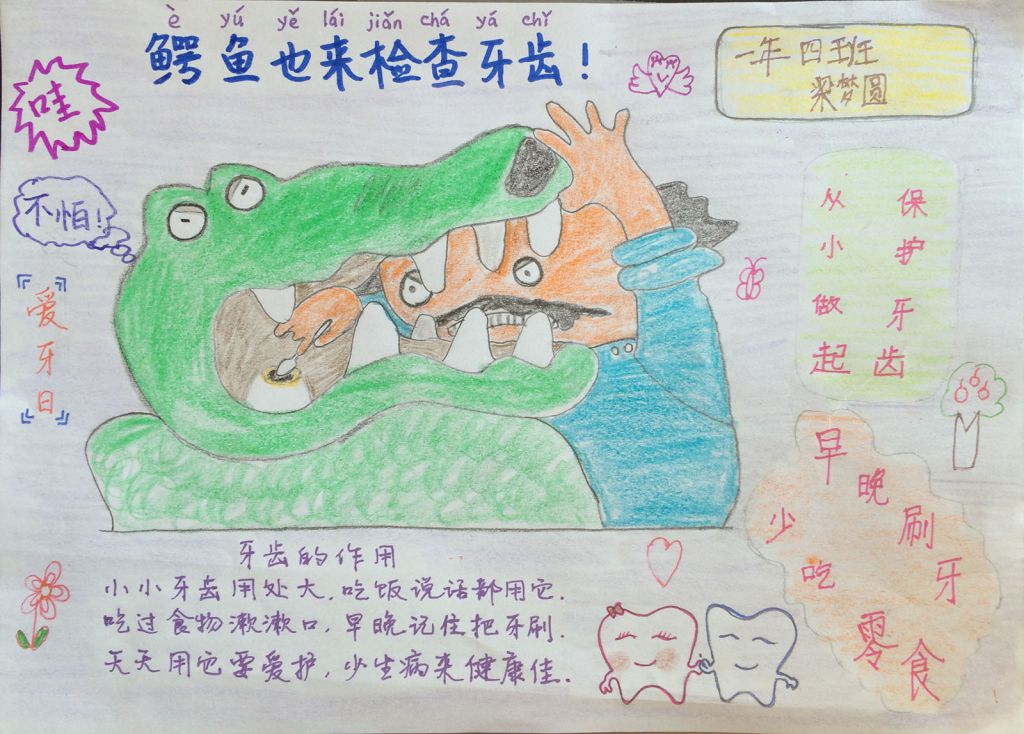 è yú yě lái jiǎn chá yá chǐ
鳄鱼也来检查牙齿!
一年四班
梁梦圆
哇
不怕!
『爱牙日』
从小做起
保护牙齿
早晚刷牙
少吃零食
牙齿的作用
小小牙齿用处大,吃饭说话都用它.
吃过食物漱漱口,早晚记住把牙刷.
天天用它要爱护,少生病来健康佳.